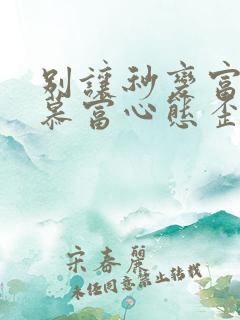 别讓秒變富
慕富心態歪
宋春麗
未经同意禁止转载